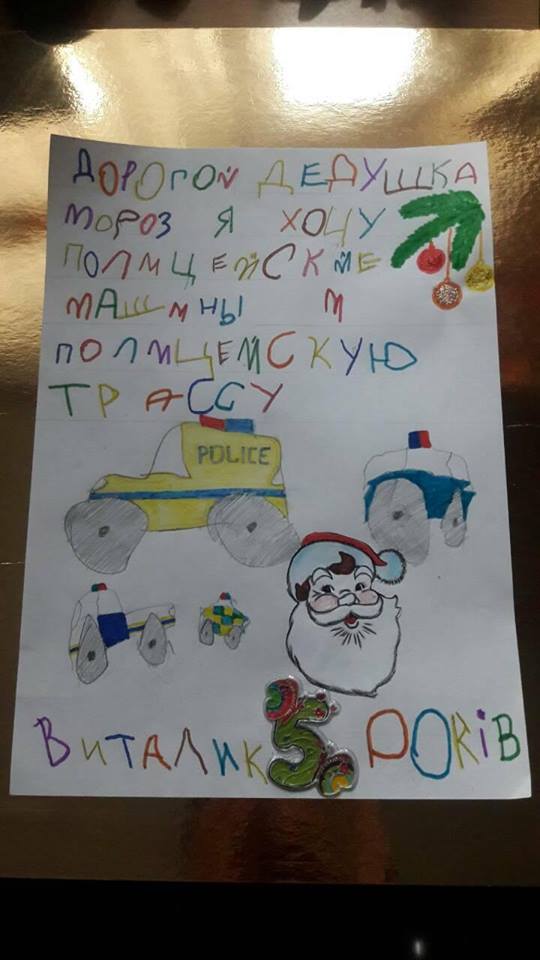 ДОРОГОЙ ДЕДУШКА
МОРОЗ Я ХОЦУ
ПОЛИЦЕЙСКИЕ
МАШИНЫ И
ПОЛИЦЕЙСКУЮ
ТРАССУ
POLICE
ВИТАЛИК 5 РОКІВ